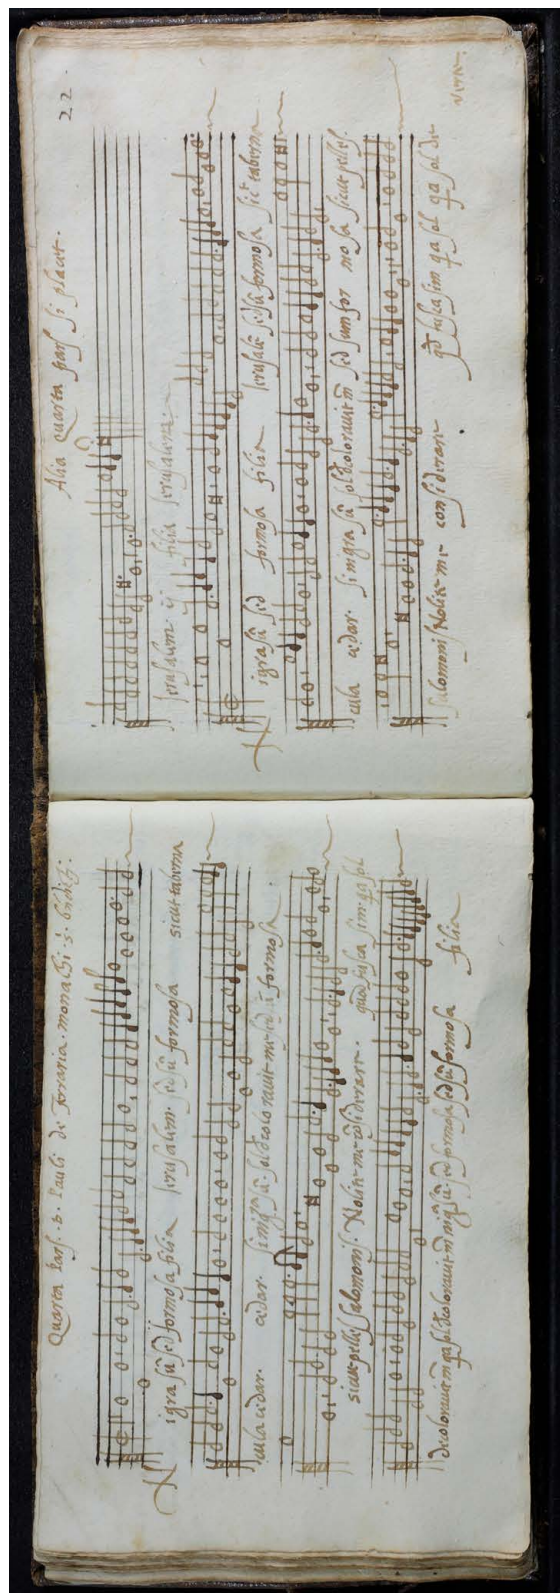 Quarta pars. D. Pauli de Ferraria. monachi. s. bndicti.
igra sū sed formosa filia Jerusalem. sed sū formosa sicut taberna
cula cedar. cedar. sed sū formosa
sicut pelles Salomonis. Nolite me cōsiderare. quod fusca sim. qa sol
decoloravit me qa sol decoloravit me nigra sū sed formosa sed sū formosa filia
22
Alia Quarta pars si placet.
Jerusalem ij filia Jerusalem.
igra sū sed formosa filia Jerusalē sed sū formosa sicut taberna
cula cedar. sed sum formosa sicut pelles.
Salomonis Nolite me considerare qd fusca sim qa sol qa sol de